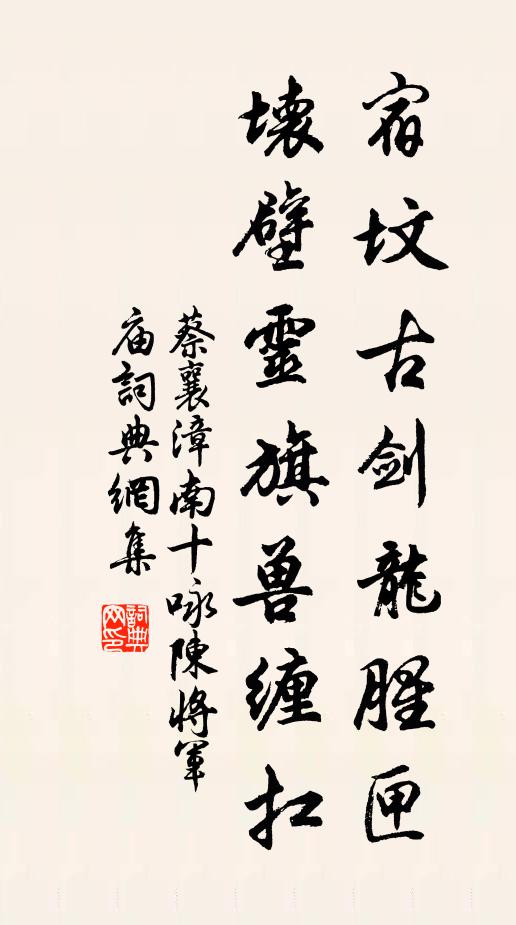 宿坟古剑龍腥匣
壊壁靈旗兽缠扛
蔡襄漳南十咏陳将軍
庙詞典網集
詞典
网印